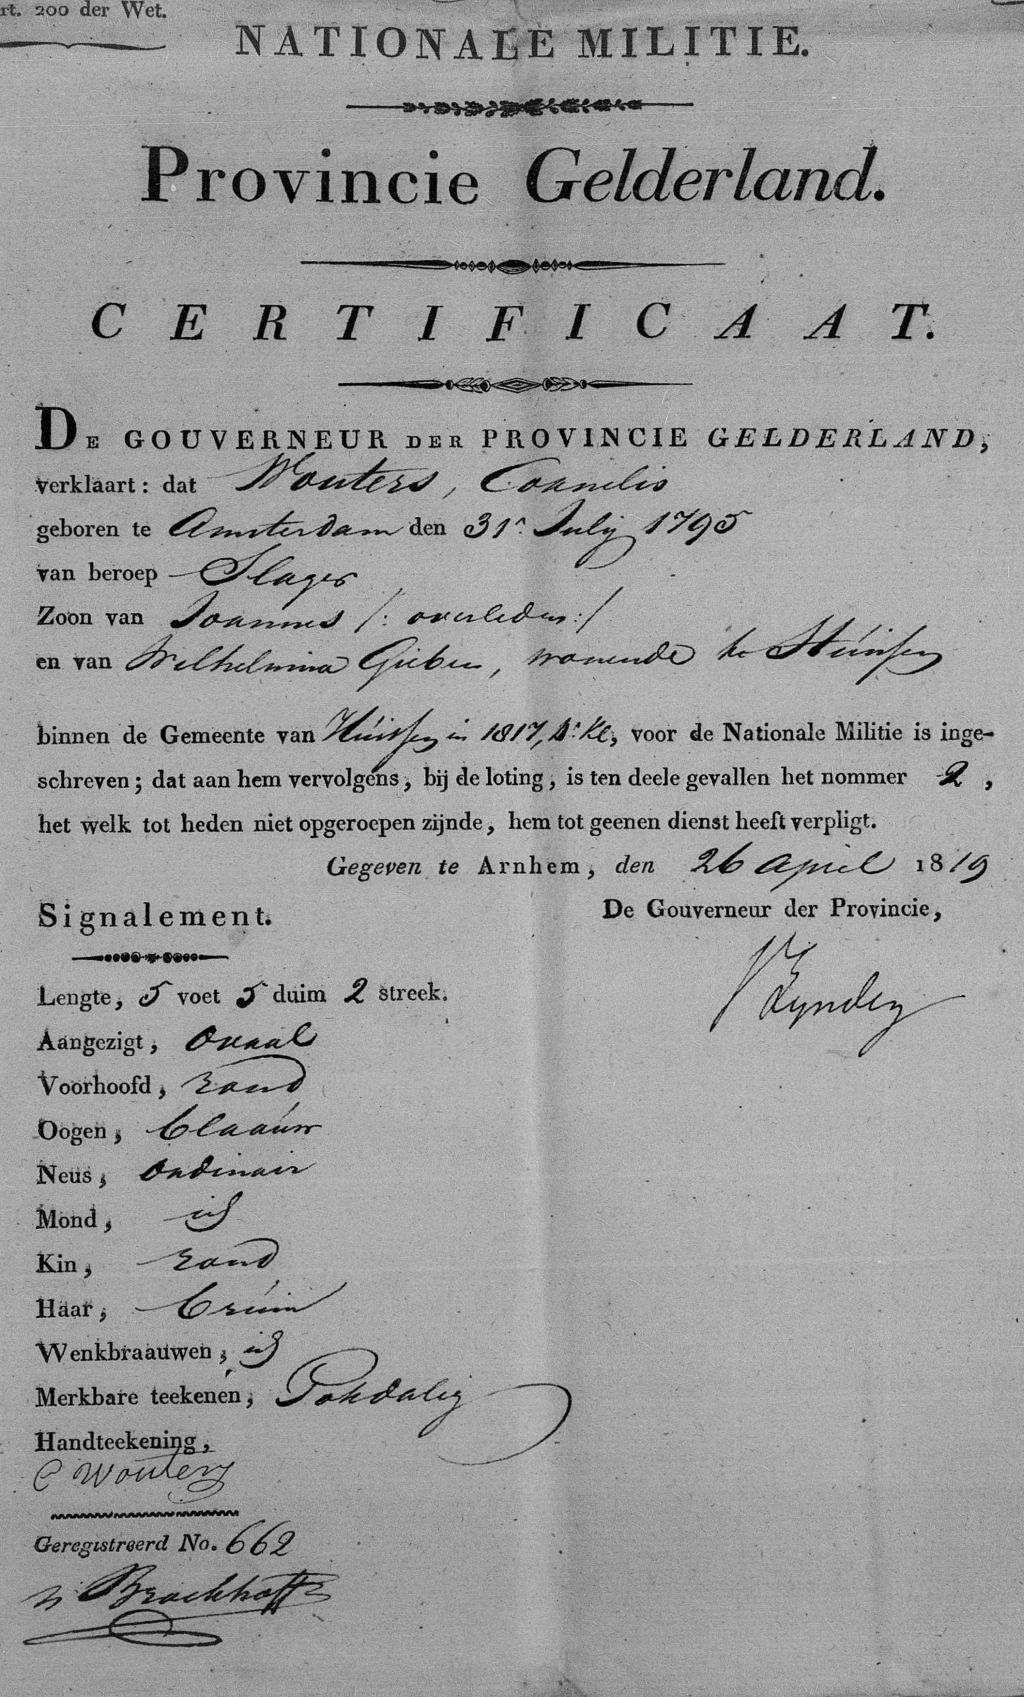 rt. 200 der Wet.
NATIONALE MILITIE.
Provincie Gelderland.
CERTIFICAAT.
DE GOUVERNEUR DER PROVINCIE GELDERLAND,
verklaart: dat Wouters, Cornelis
geboren te Amsterdam den 31n July 1795
van beroep Slager
Zoon van Joannes /: overleden :/
en van Wilhelmina Gieben, wonende te Huissen
binnen de Gemeente van Huissen in 1817, Kl, voor de Nationale Militie is inge-
schreven; dat aan hem vervolgens, bij de loting, is ten deele gevallen het nommer 2,
het welk tot heden niet opgeroepen zijnde, hem tot geenen dienst heeft verpligt.
Gegeven te Arnhem, den 26 April 1819
Signalement. De Gouverneur der Provincie,
Lengte, 5 voet 5 duim 2 streek.
Aangezigt, Ovaal
Voorhoofd, rond
Oogen, blaauw
Neus, Ordinair
Mond, id
Kin, rond
Haar, bruin
Wenkbraauwen, id
Merkbare teekenen, Pokdalig
Handteekening,
C Wouters
Geregistreerd No. 662
Brockhoff